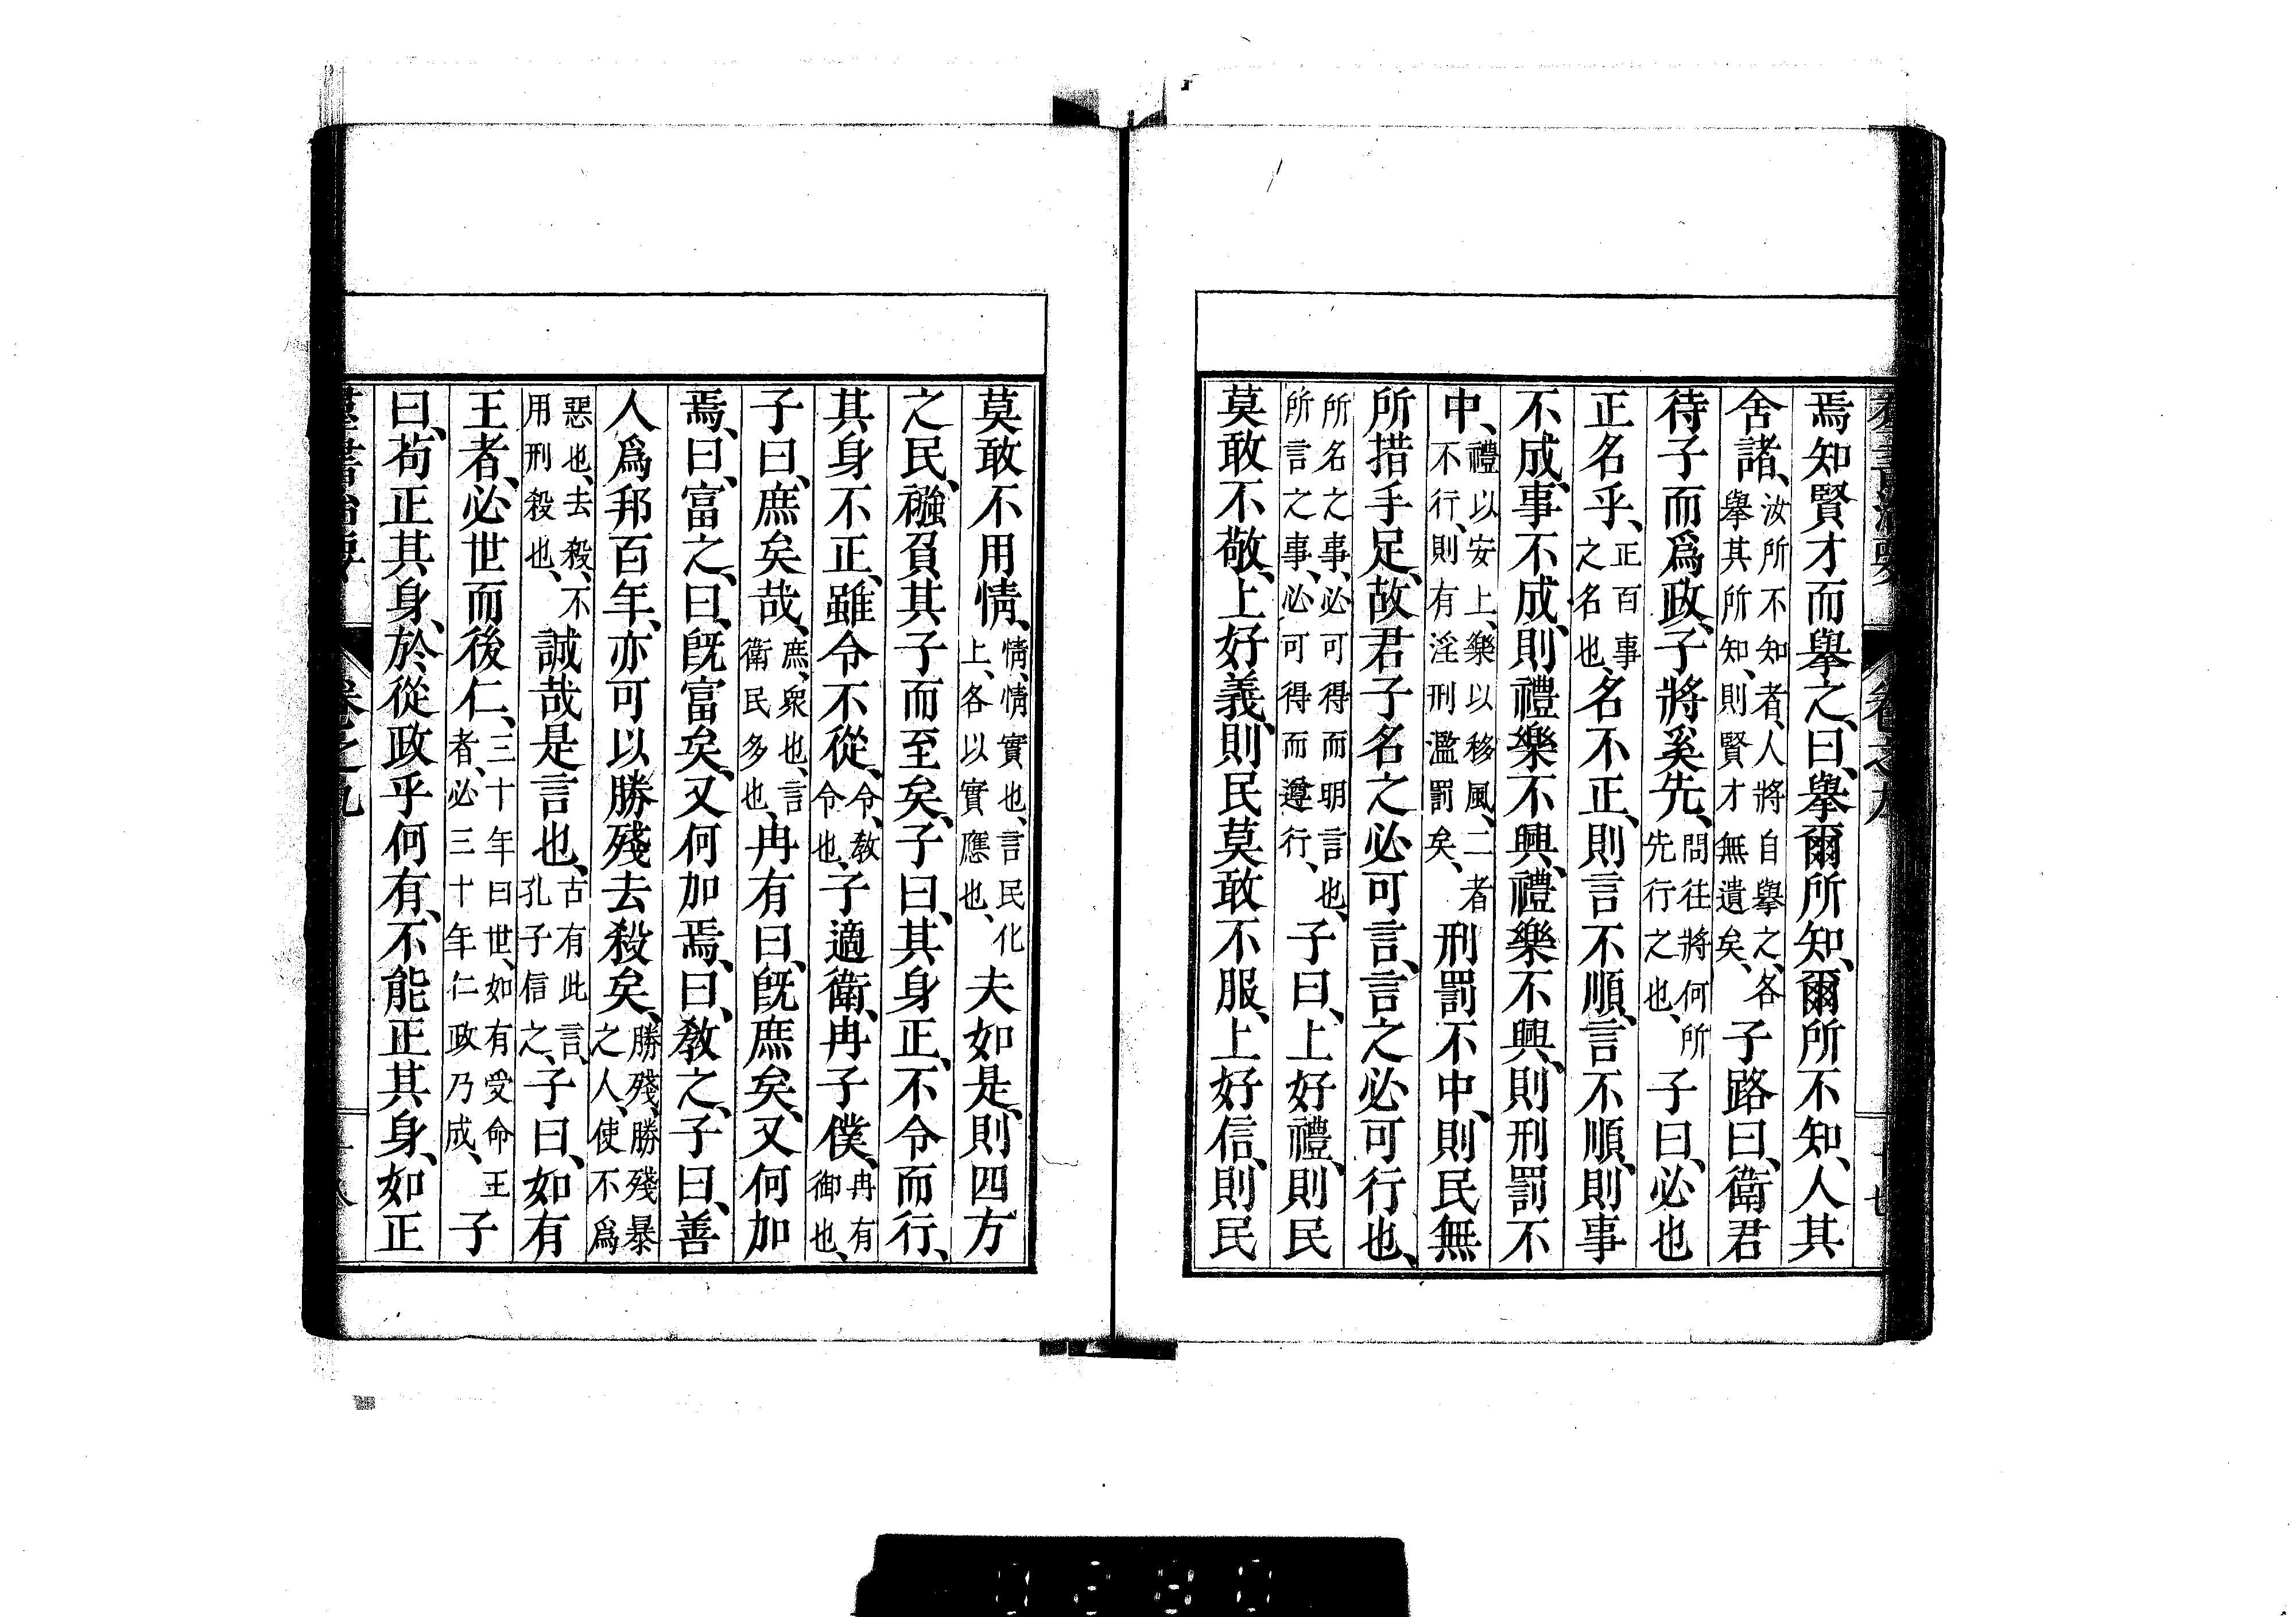 焉知賢才而擧之、曰、擧爾所知、爾所不知、人其
舍諸、汝所不知者、人將自擧之、各擧其所知、則賢才無遺矣、子路曰、衛君
待子而爲政、子將奚先、問往將何所先行之也、子曰、必也
正名乎、正百事之名也、名不正、則言不順、言不順、則事
不成、事不成、則禮樂不興、禮樂不興、則刑罰不
中、禮以安上、樂以移風、二者不行、則有淫刑濫罰矣、刑罰不中、則民無
所措手足、故君子名之必可言、言之必可行也、
所名之事、必可得而明言也、所言之事、必可得而遵行、子曰、上好禮、則民
莫敢不敬、上好義、則民莫敢不服、上好信、則民
莫敢不用情、情、情實也、言民化上、各以實應也、夫如是、則四方
之民、襁負其子而至矣、子曰、其身正、不令而行、
其身不正、雖令不從、令、教令也、子適衛、冉子僕、冉有御也、
子曰、庶矣哉、庶、衆也、言衛民多也、冉有曰、既庶矣、又何加
焉、曰、富之、曰、既富矣、又何加焉、曰、教之、子曰、善
人爲邦百年、亦可以勝殘去殺矣、勝殘、勝殘暴之人、使不爲
惡也、去殺、不用刑殺也、誠哉是言也、古有此言、孔子信之、子曰、如有
王者、必世而後仁、三十年曰世、如有受命王者、必三十年仁政乃成、子
曰、苟正其身、於從政乎何有、不能正其身、如正
卷之九